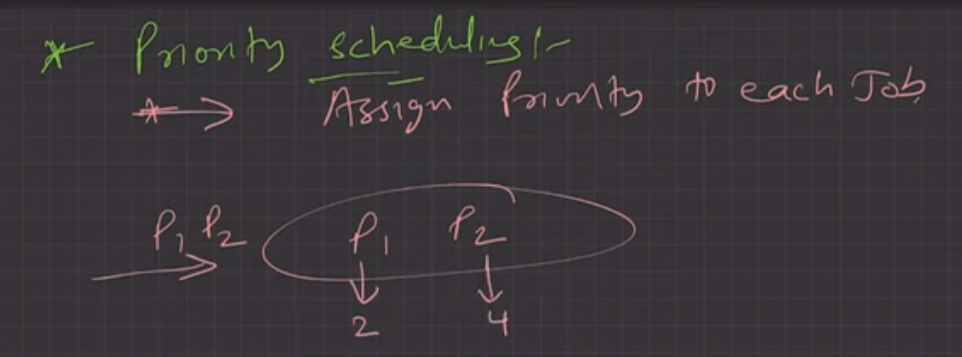 * Priority scheduling:-
* → Assign Priority to each Job
P1 P2 P1 P2
→ ↓ ↓
2 4